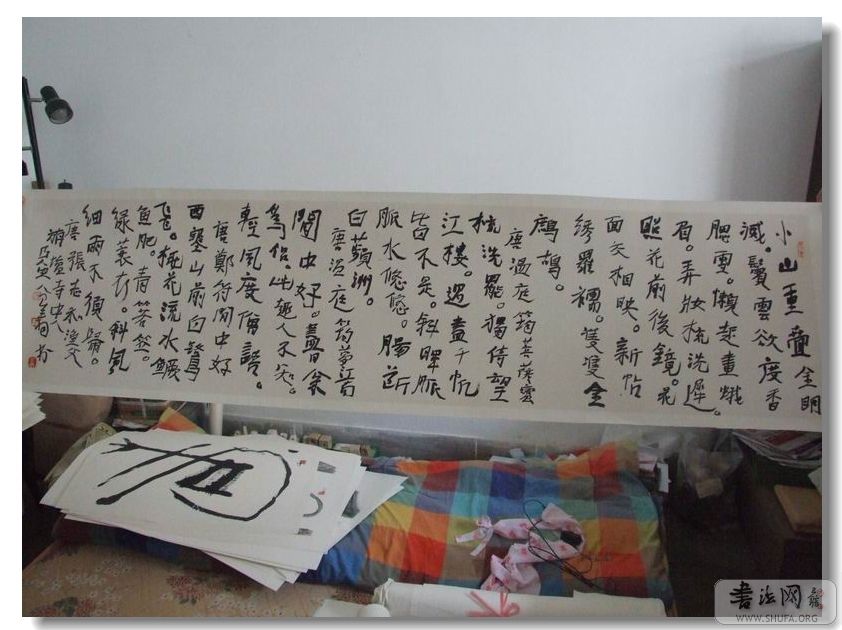 小山重疊金明
滅。鬢雲欲度香
腮雪。懶起畫蛾
眉。弄妝梳洗遲。
照花前後鏡。花
面交相映。新帖
綉羅襦。雙雙金
鷓鴣。
唐溫庭筠菩薩蠻
梳洗罷。獨倚望
江樓。過盡千帆
皆不是。斜暉脈
脈水悠悠。腸斷
白蘋洲。
唐溫庭筠夢江南
閒中好。盡日
爲侶。此趣人不知。
輕風度僧語。
唐鄭符閒中好
西塞山前白鷺
飛。桃花流水鱖
魚肥。青箬笠。
綠蓑衣。斜風
細雨不須歸。
唐張志和漁父
書法网
WWW.SHUFA.ORG